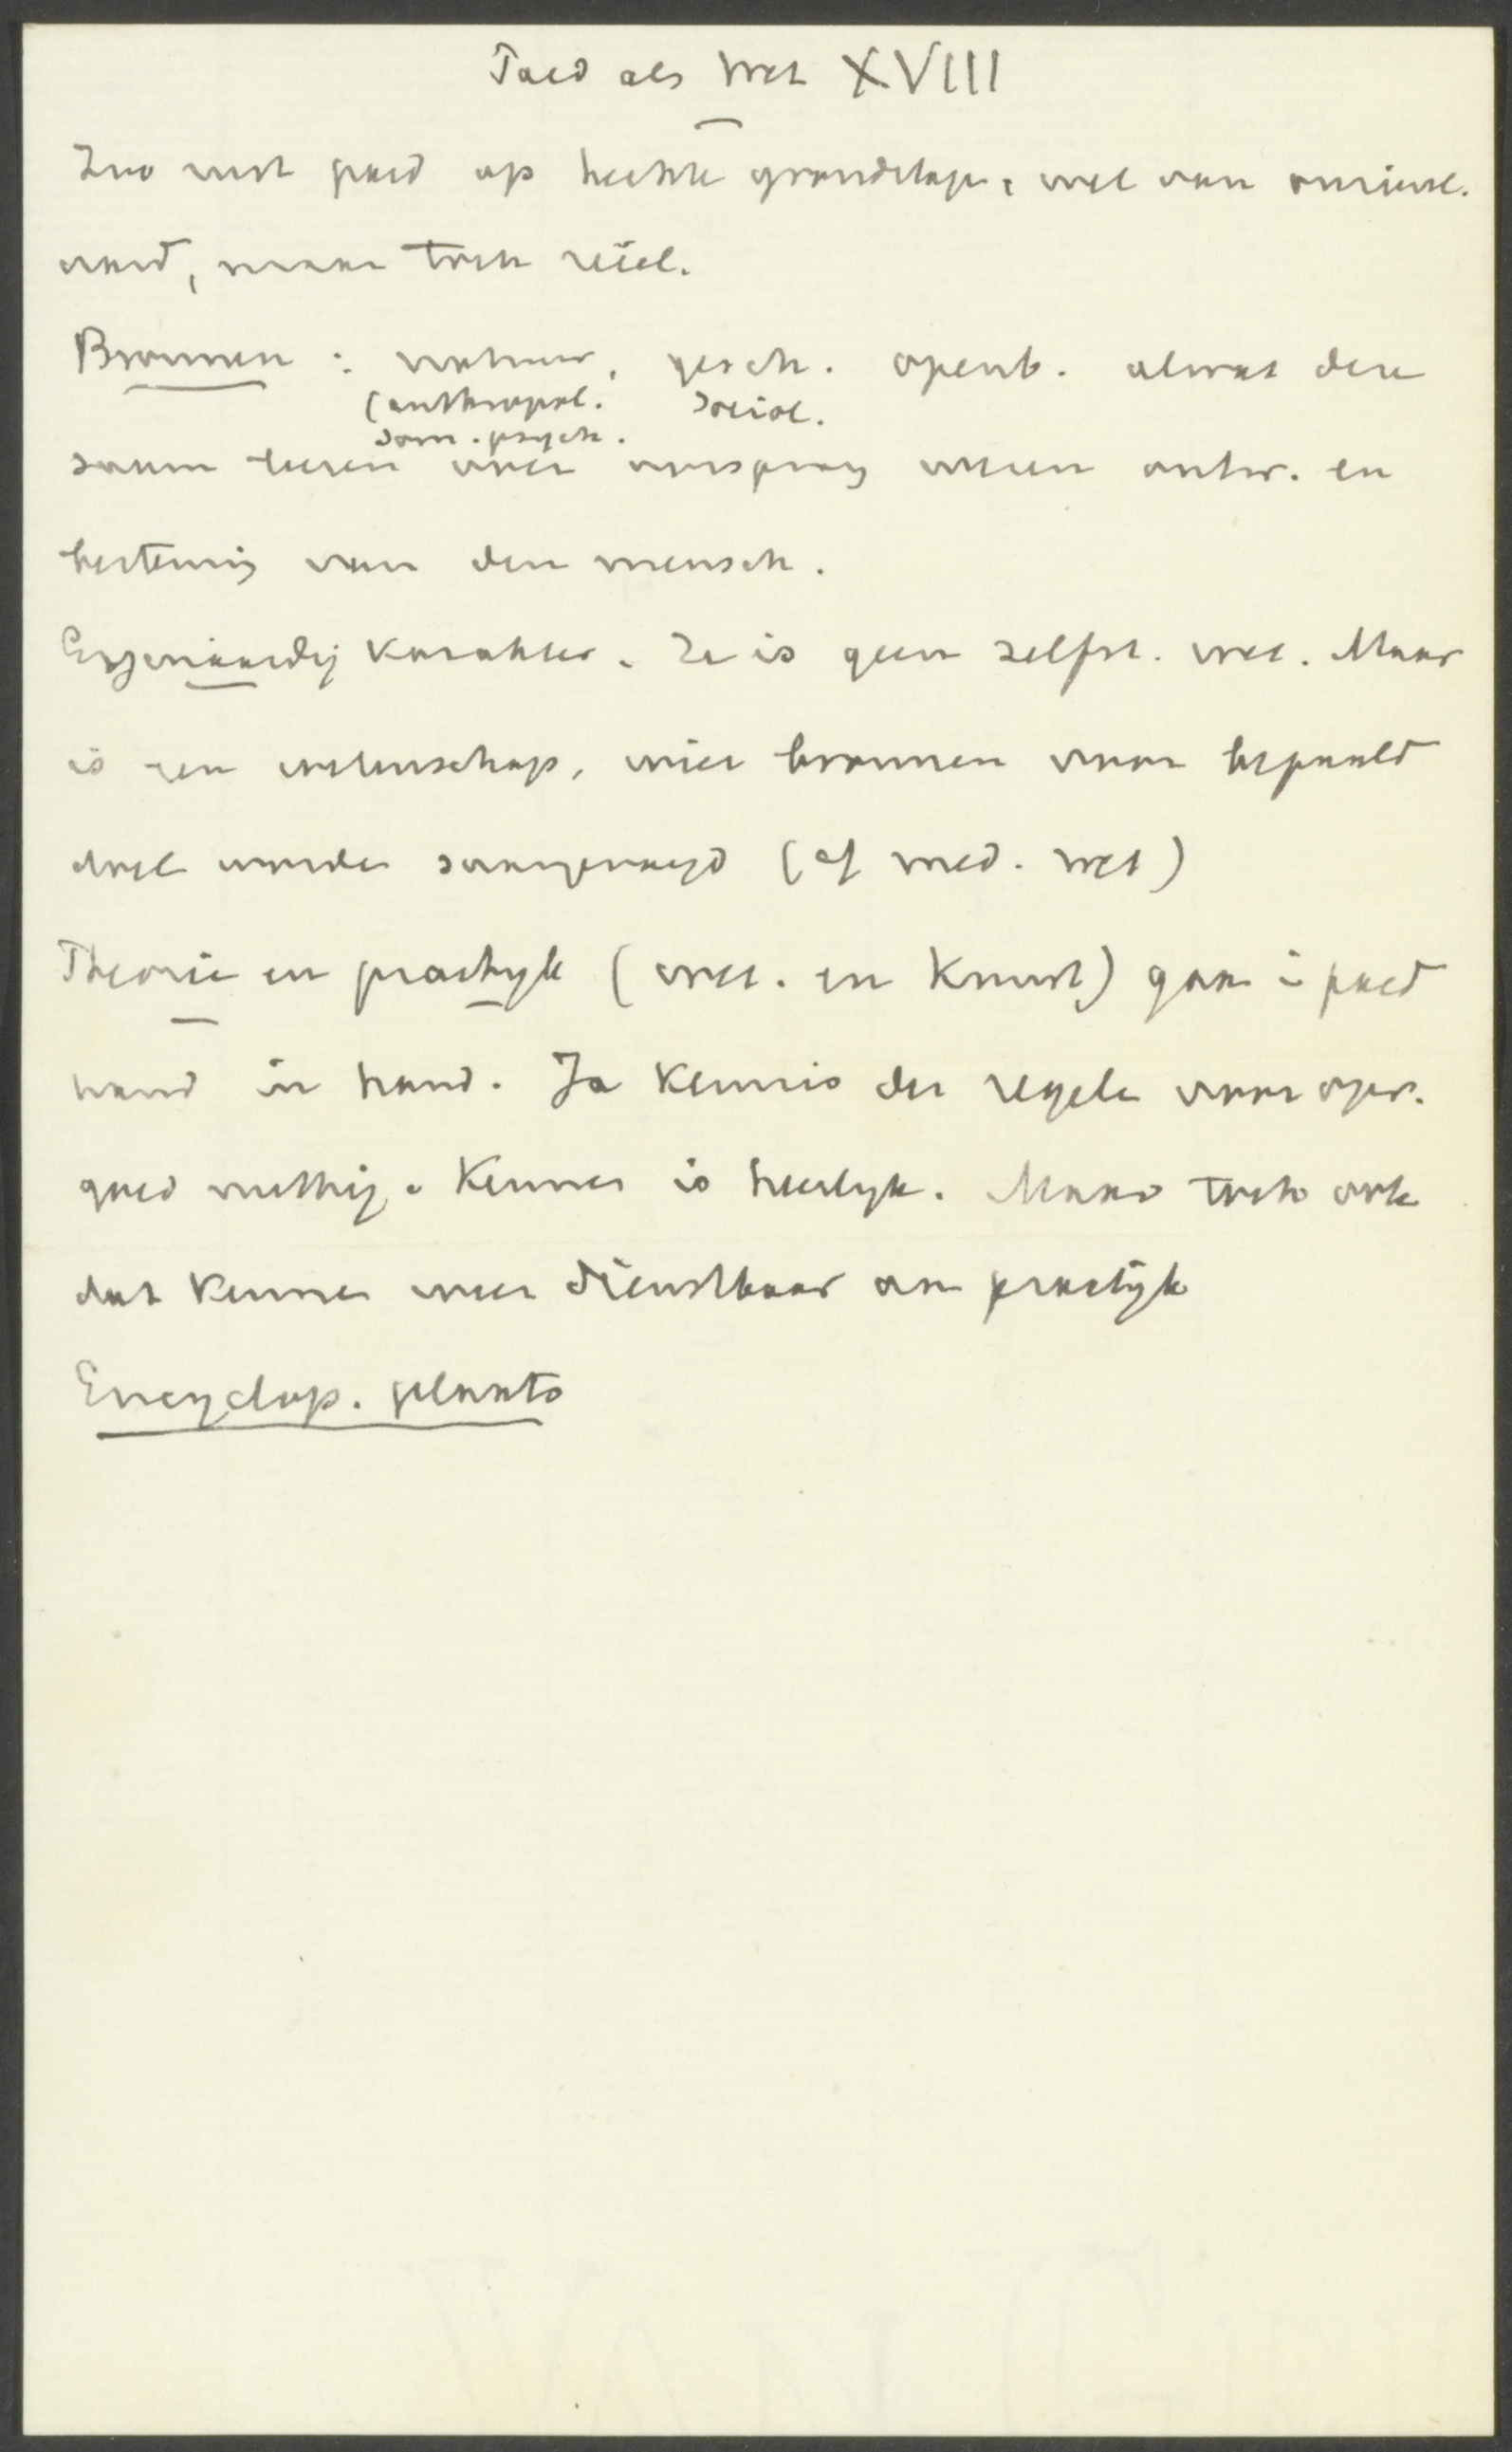 Paed als Wet XVIII
Zoo rust paed op hechte grondslagen, wel van onzienl.
aard, maar toch reëel.
Bronnen : natuur, gesch. openb. alwat deze
(anthropol. Sociol.
som. psych.
saam leeren over oorsprong wezen ontw. en
bestemming van den mensch.
Eigenaardig karakter. Ze is geen zelfst. wet. Maar
is een wetenschap, wier bronnen voor bepaald
doel worden saamgevoegd (cf med. wet)
Theorie en practyk (wet. en Kunst) gaan i paed
hand in hand. Ja Kennis der regels voor opv.
goed noodig. Kennen is heerlyk. Maar toch ook
dat kennen weer dienstbaar aan practyk
Encyclop. plaats